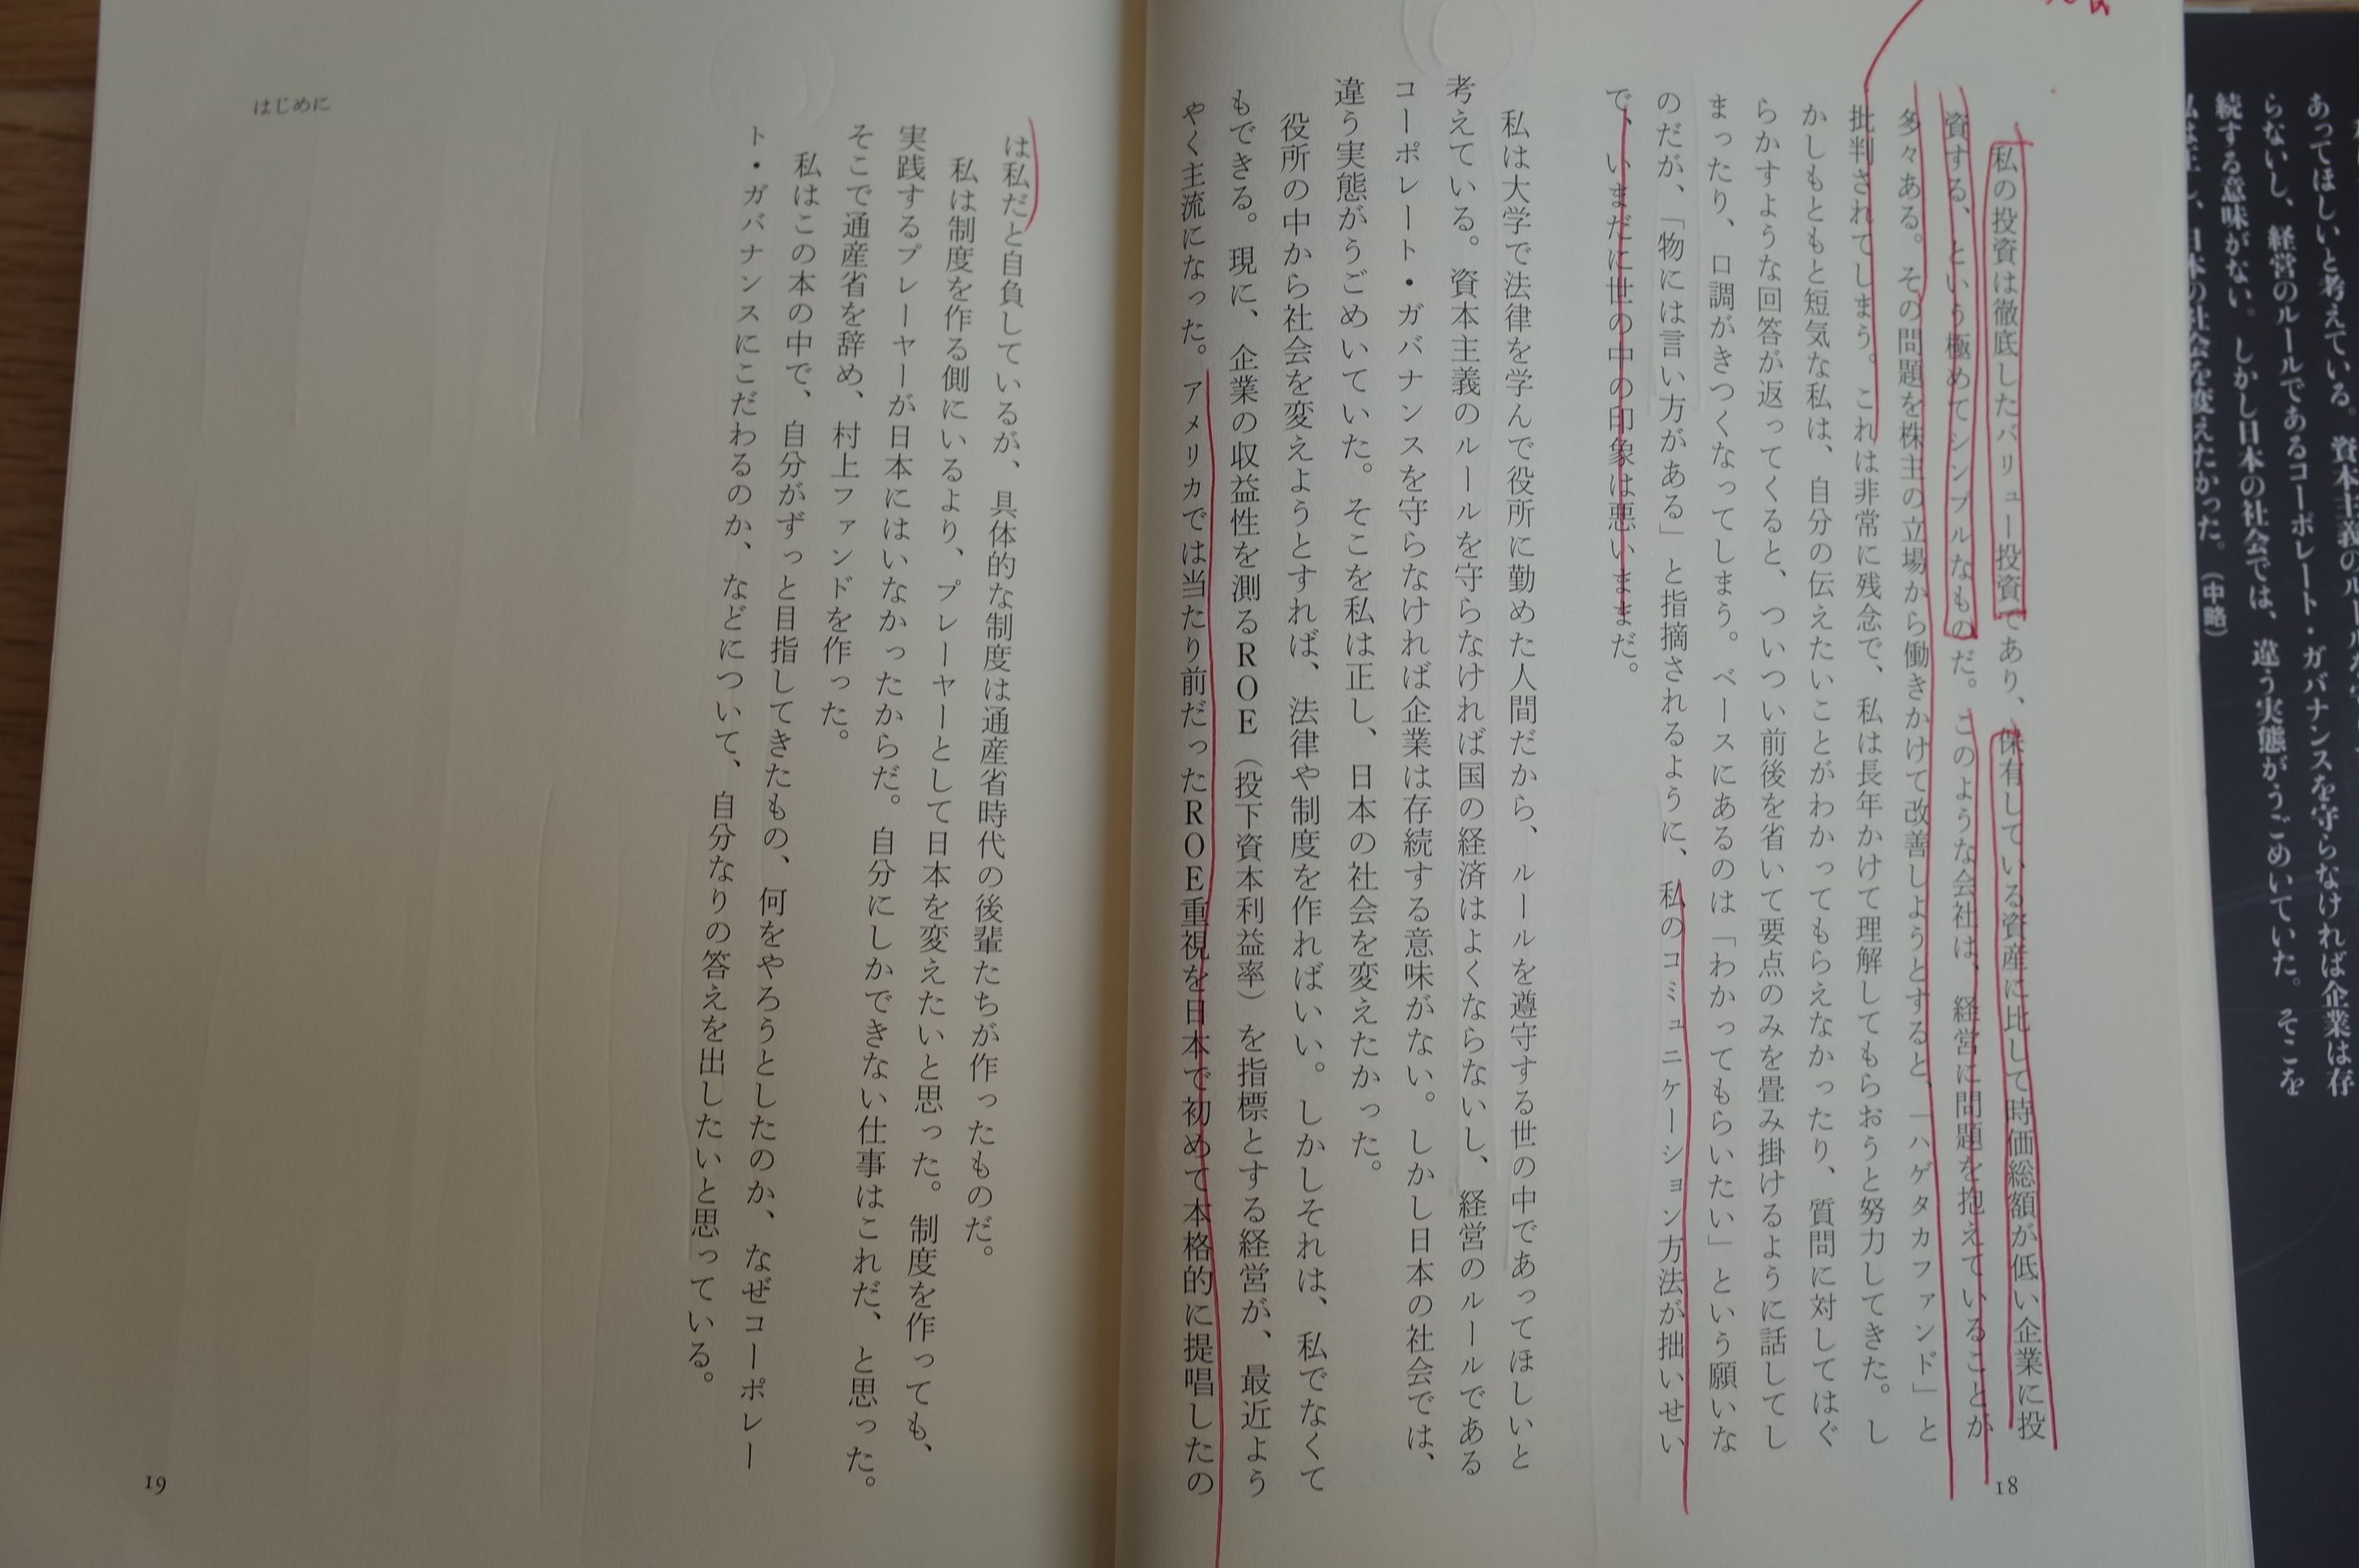 あってほしいと考えている。資本主義の
らないし、経営のルールであるコーポレート・ガバナンスを守らなければ企業は存
続する意味がない。しかし日本の社会では、違う実態がうごめいていた。そこを
私は正し、日本の社会を変えたかった。(中略)
私の投資は徹底したバリュー投資であり、保有している資産に比して時価総額が低い企業に投
資する、という極めてシンプルなものだ。このような会社は、経営に問題を抱えていることが
多々ある。その問題を株主の立場から働きかけて改善しようとすると、「ハゲタカファンド」と
批判されてしまう。これは非常に残念で、私は長年かけて理解してもらおうと努力してきた。し
かしもともと短気な私は、自分の伝えたいことがわかってもらえなかったり、質問に対してはぐ
らかすような回答が返ってくると、ついつい前後を省いて要点のみを畳み掛けるように話してし
まったり、口調がきつくなってしまう。ベースにあるのは「わかってもらいたい」という願いな
のだが、「物には言い方がある」と指摘されるように、私のコミュニケーション方法が拙いせい
で、いまだに世の中の印象は悪いままだ。
私は大学で法律を学んで役所に勤めた人間だから、ルールを遵守する世の中であってほしいと
考えている。資本主義のルールを守らなければ国の経済はよくならないし、経営のルールである
コーポレート・ガバナンスを守らなければ企業は存続する意味がない。しかし日本の社会では、
違う実態がうごめいていた。そこを私は正し、日本の社会を変えたかった。
役所の中から社会を変えようとすれば、法律や制度を作ればいい。しかしそれは、私でなくて
もできる。現に、企業の収益性を測るROE(投下資本利益率)を指標とする経営が、最近よう
やく主流になった。アメリカでは当たり前だったROE重視を日本で初めて本格的に提唱したの
18
はじめに
は私だと自負しているが、具体的な制度は通産省時代の後輩たちが作ったものだ。
私は制度を作る側にいるより、プレーヤーとして日本を変えたいと思った。制度を作っても、
実践するプレーヤーが日本にはいなかったからだ。自分にしかできない仕事はこれだ、と思った。
そこで通産省を辞め、村上ファンドを作った。
私はこの本の中で、自分がずっと目指してきたもの、何をやろうとしたのか、なぜコーポレー
ト・ガバナンスにこだわるのか、などについて、自分なりの答えを出したいと思っている。
19